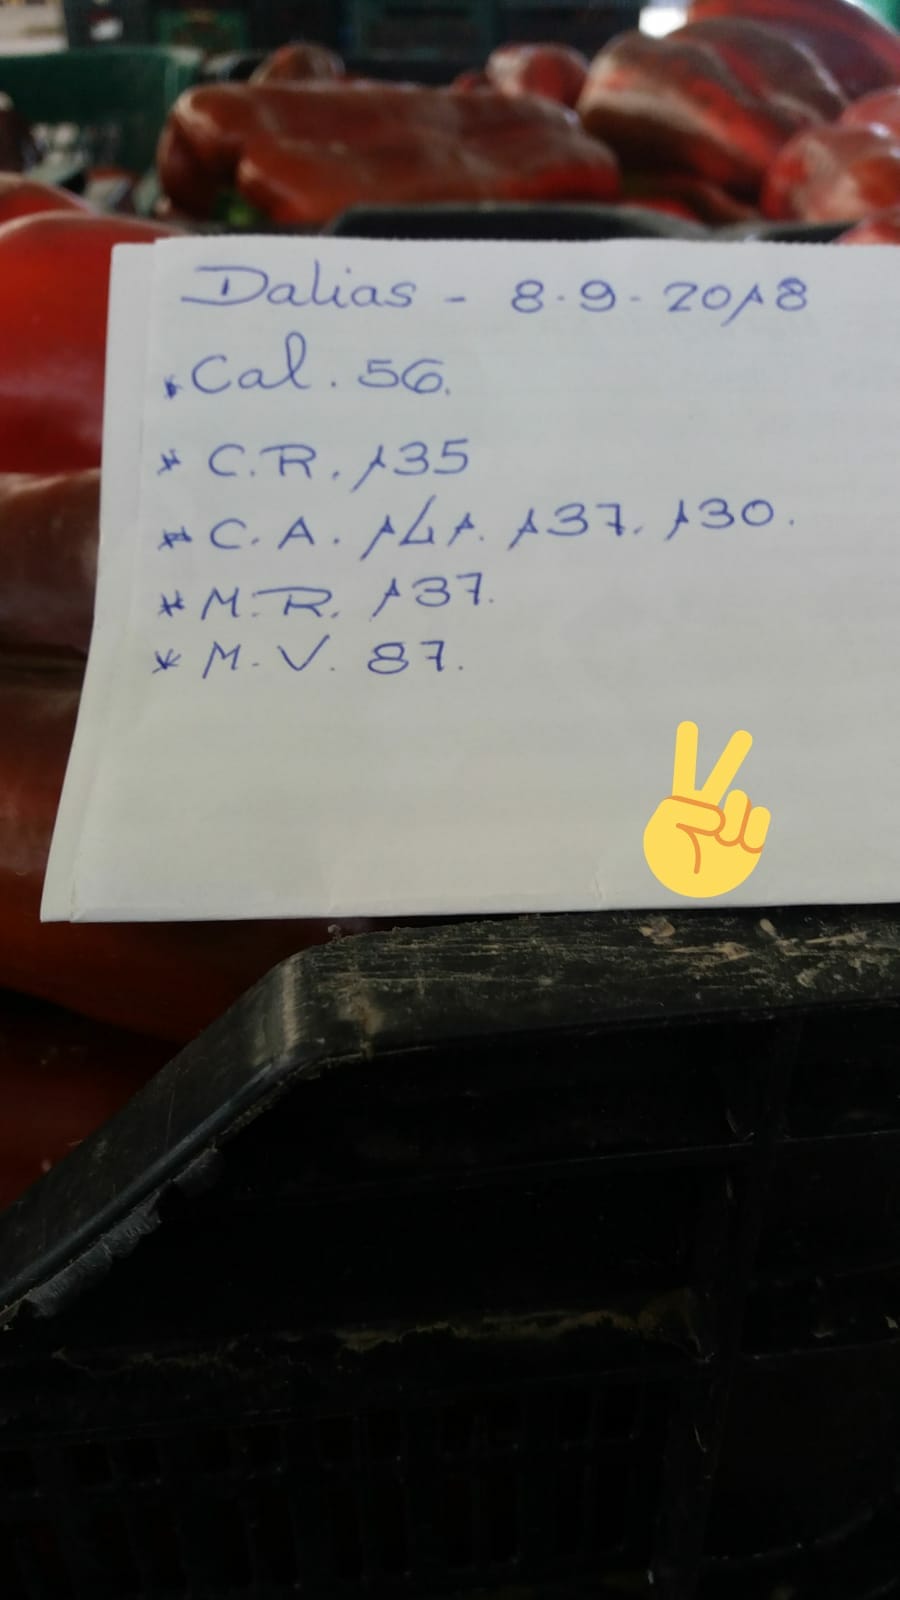 Dalias - 8.9.2018
* Cal. 56.
* C.R. 135
* C.A. 141. 137. 130.
* M.R. 137.
* M.V. 87.